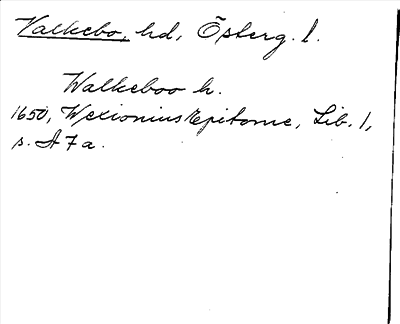 Valkebo, hd, Österg. l.
Walkeboo h.
1650, Wexionius Epitome, Lib. 1,
s. A 7 a.